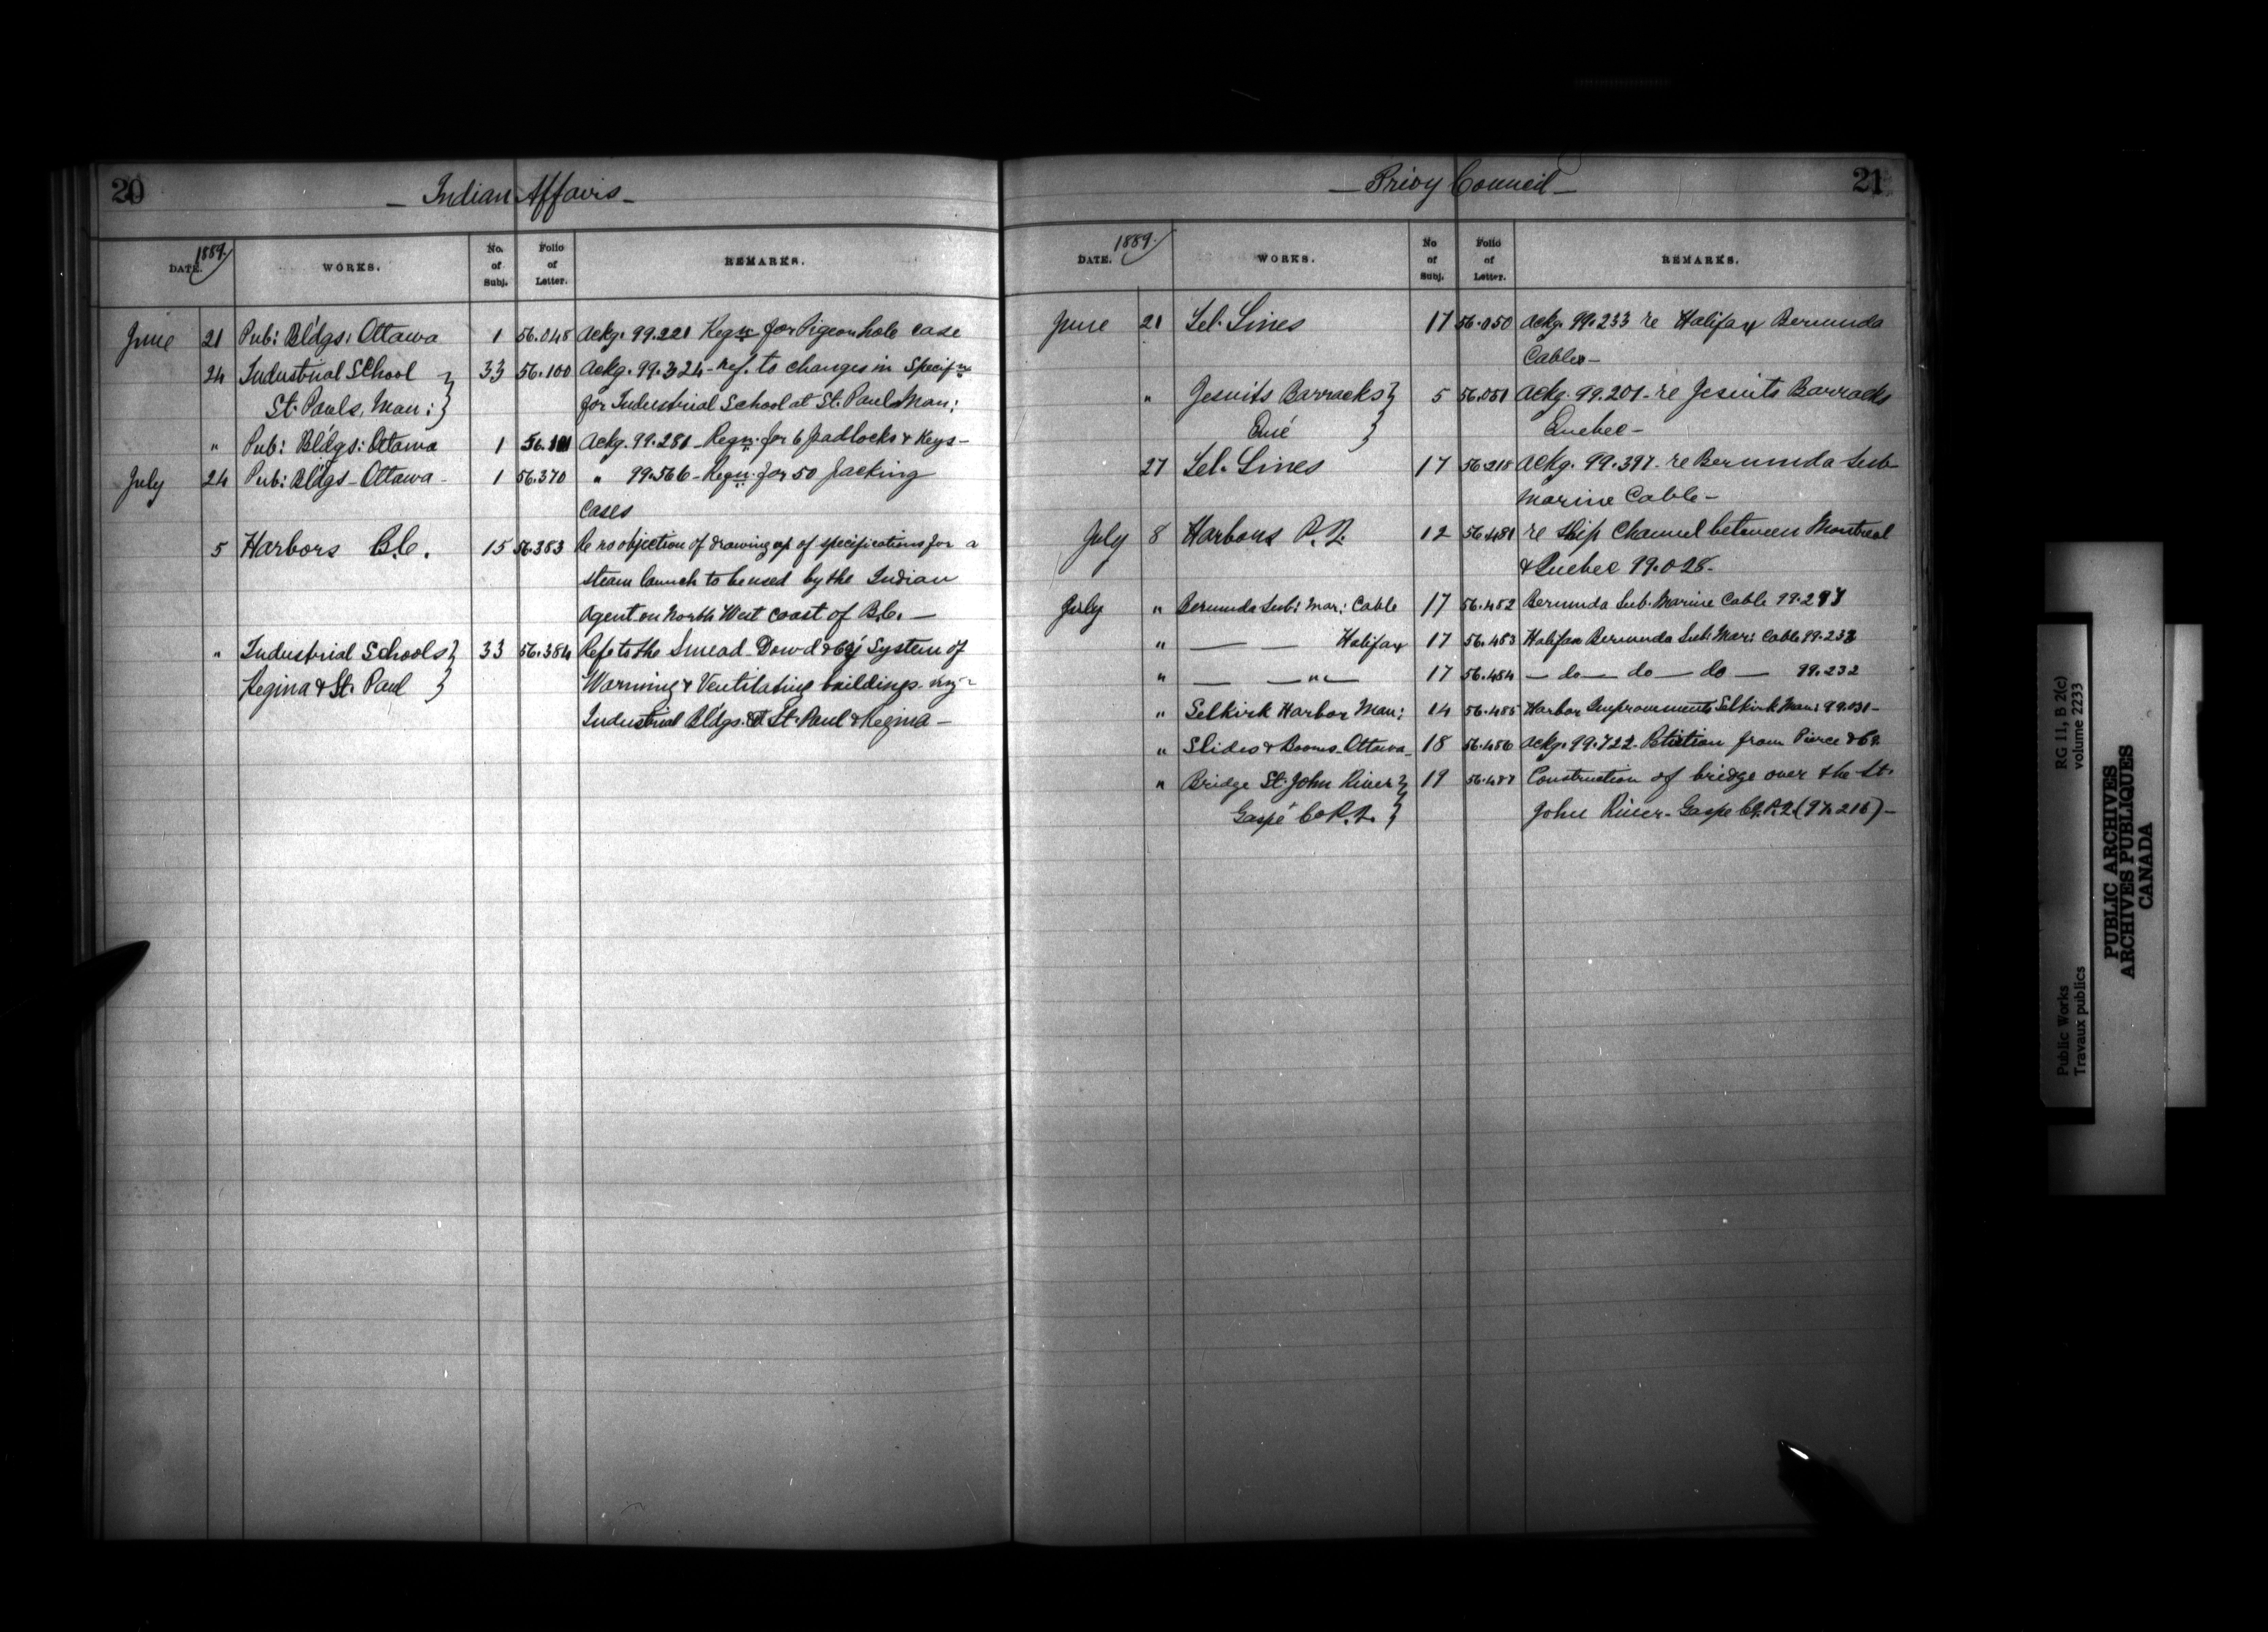 20
— Indian Affairs —
DATE. 1889. WORKS. No. of Subj. Folio of Letter. REMARKS.
June 21 Pub: Bldgs: Ottawa 1 56.048 Ackg. 99.221 Reqn: for Pigeon hole case
24 Industrial School } 33 56.100 Ackg. 99.324 - ref. to changes in Specifns
St. Pauls, Man: } for Industrial School at St. Pauls Man:
" Pub: Bldgs: Ottawa 1 56.101 Ackg. 99.281 - Reqn: for 6 padlocks & Keys -
July 24 Pub: Bldgs - Ottawa - 1 56.370 " 99.566 - Reqn: for 50 packing
cases
5 Harbors B.C. 15 56.383 Re no objection of drawing up of specifications for a
steam launch to be used by the Indian
Agent on North West coast of B.C. —
" Industrial Schools } 33 56.384 Refs to the Smead Dowd & Co's System of
Regina & St. Paul } Warming & Ventilating buildings
Industrial Bldgs. at St. Paul & Regina —
21
— Privy Council —
DATE. 1889. WORKS. No of Subj. Folio of Letter. REMARKS.
June 21 Tel. Lines 17 56.050 Ackg. 99.233 re Halifax Bermuda
Cable —
" Jesuits Barracks } 5 56.051 Ackg. 99.201 - re Jesuits Barracks
} Quebec —
27 Tel. Lines 17 56.218 Ackg. 99.397 - re Bermuda Sub-
marine Cable —
July 8 Harbours P.Q. 12 56.481 re Ship Channel between Montreal
& Quebec 99.028 -
July " Bermuda Sub: Mar: Cable 17 56.482 Bermuda Sub. Marine Cable
" — — Halifax 17 56.483 Halifax Bermuda Sub: Mar: Cable 99.233
" — — " — 17 56.484 — do — do — do — 99.232
" Selkirk Harbor Man: 14 56.485 Harbor Improvements Selkirk Man: 99.031 -
" Slides & Booms - Ottawa - 18 56.486 Ackg. 99.722 - Petition from Pierce & Co.
" Bridge St. John River } 19 56.487 Construction of bridge over the St.
Gaspé Co P.Q. } John River - Gaspe Co. P.Q. (97.216) —
RG 11, B 2(c)
volume 2233
Public Works
Travaux publics
PUBLIC ARCHIVES
ARCHIVES PUBLIQUES
CANADA